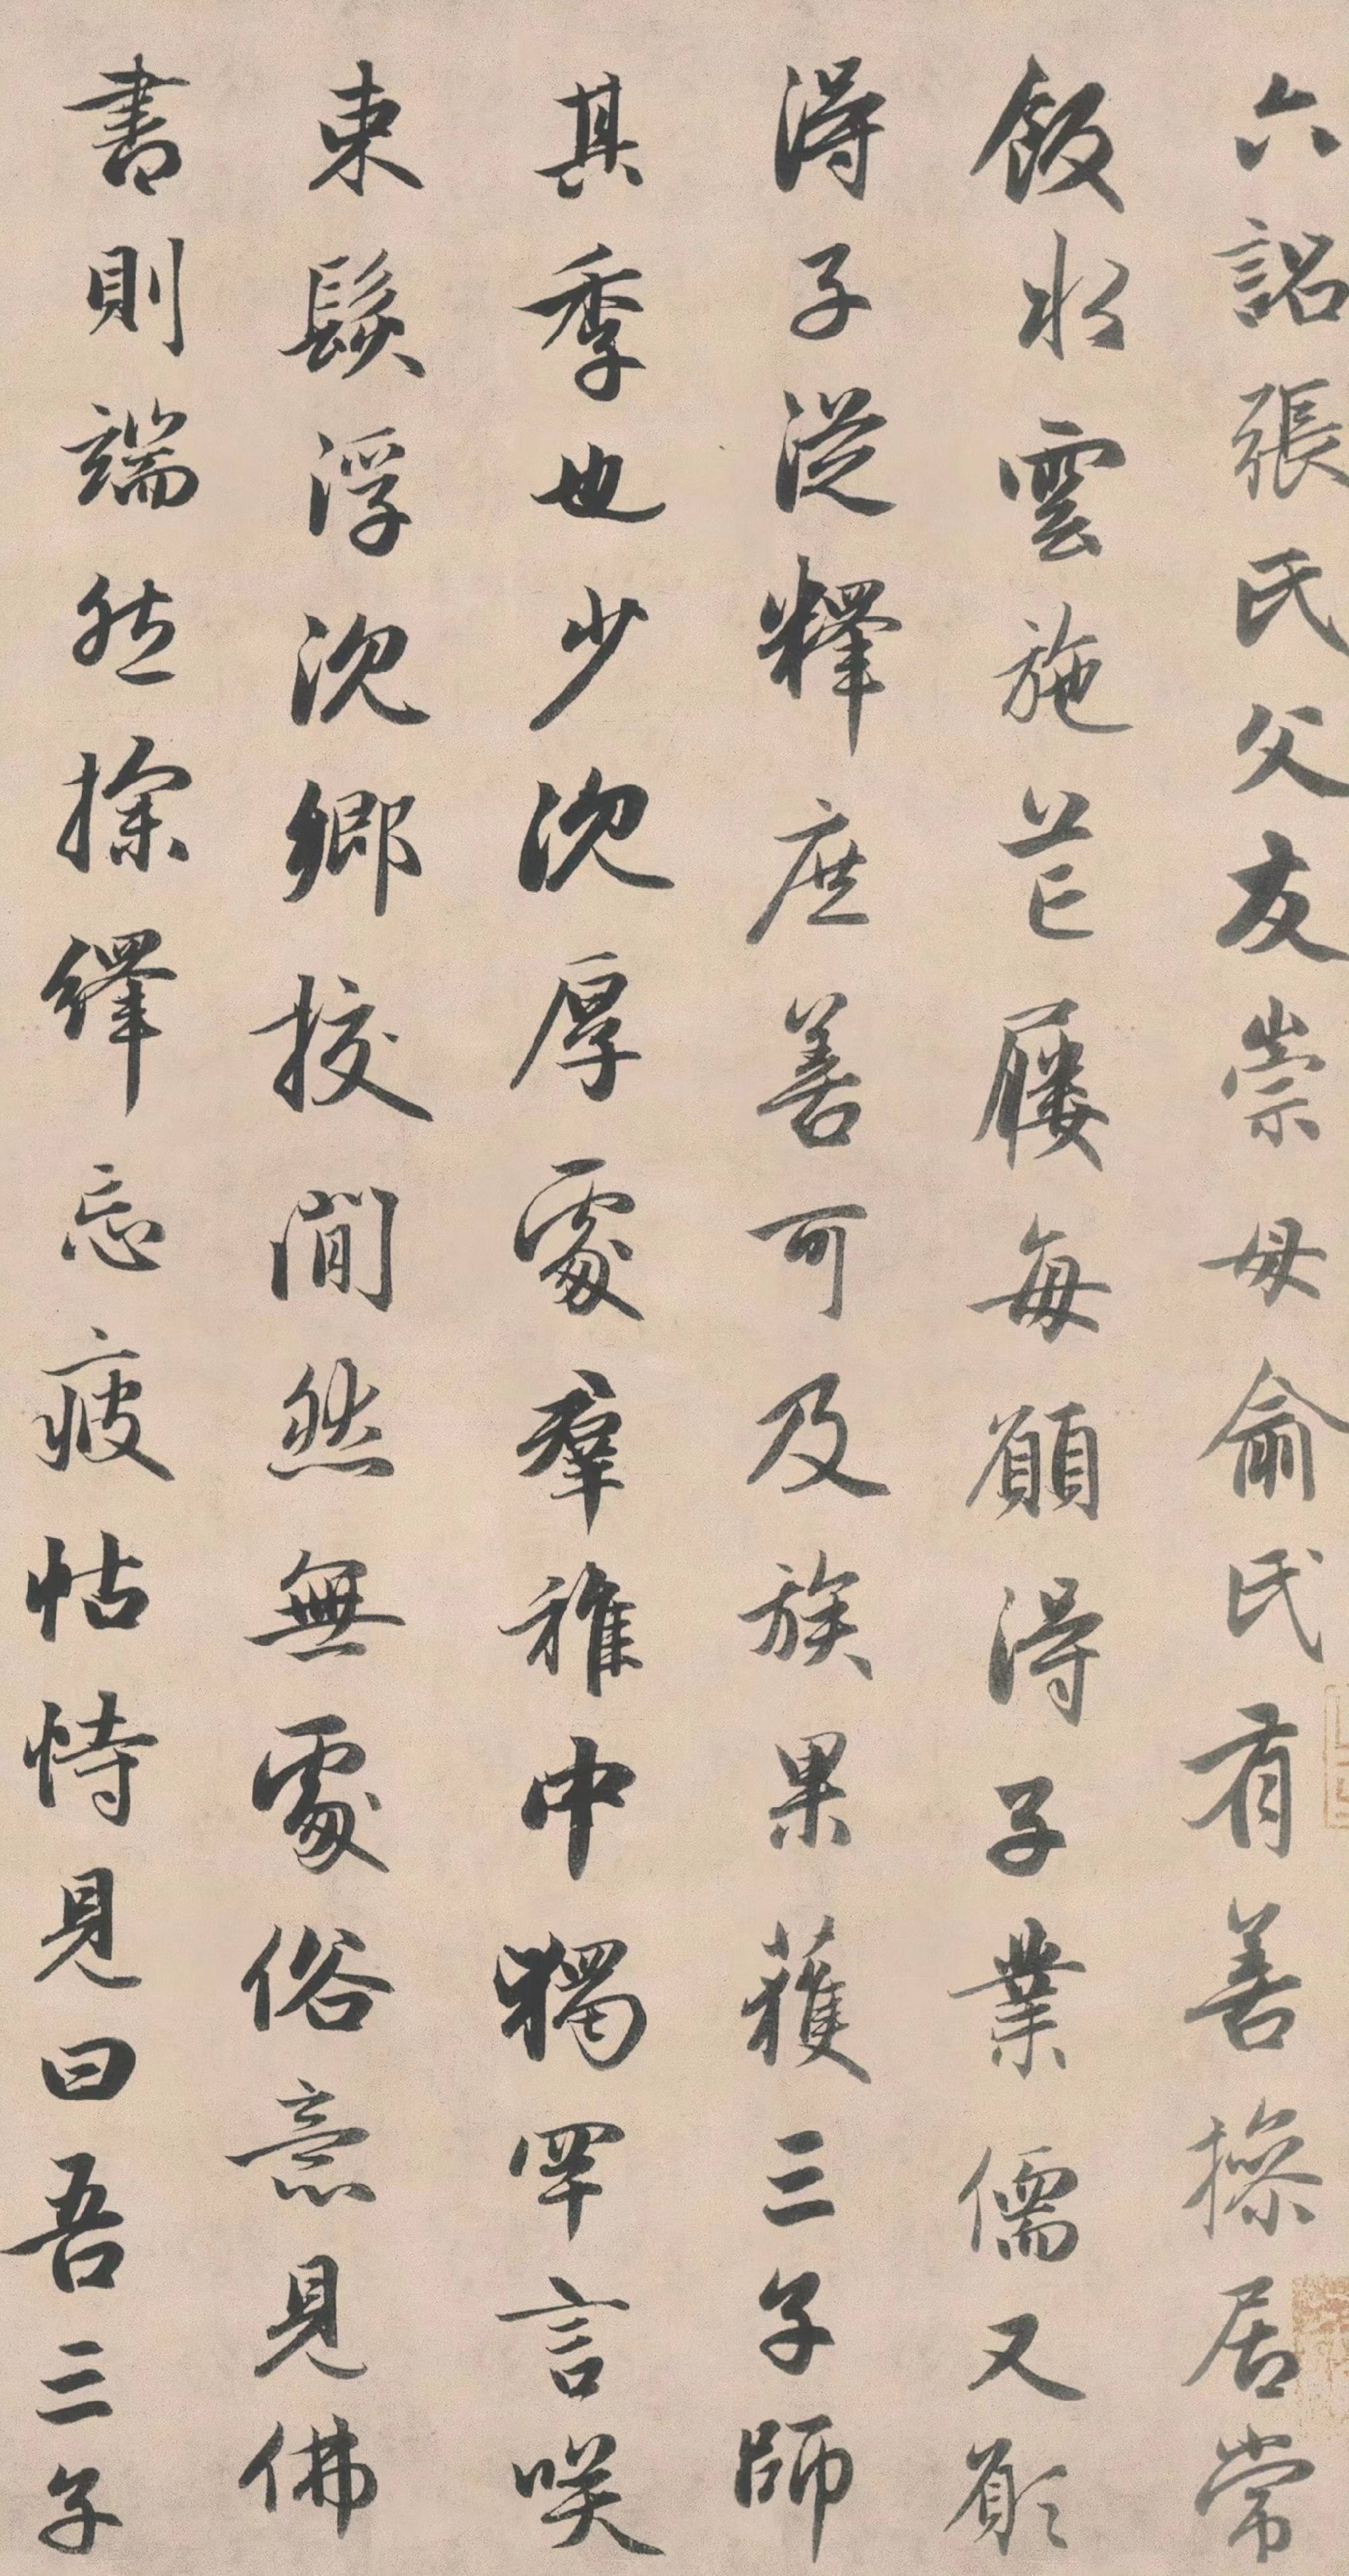 六詔張氏父友崇母俞氏有善操居常
飯水雲施芒屨每願得子業儒又願
得子從釋庶善可及族果獲三子師
其季也少沈厚處羣稚中獨罕言咲
束髮浮沈鄉校閒然無處俗意見佛
書則端然探繹忘疲怙恃見曰吾三子